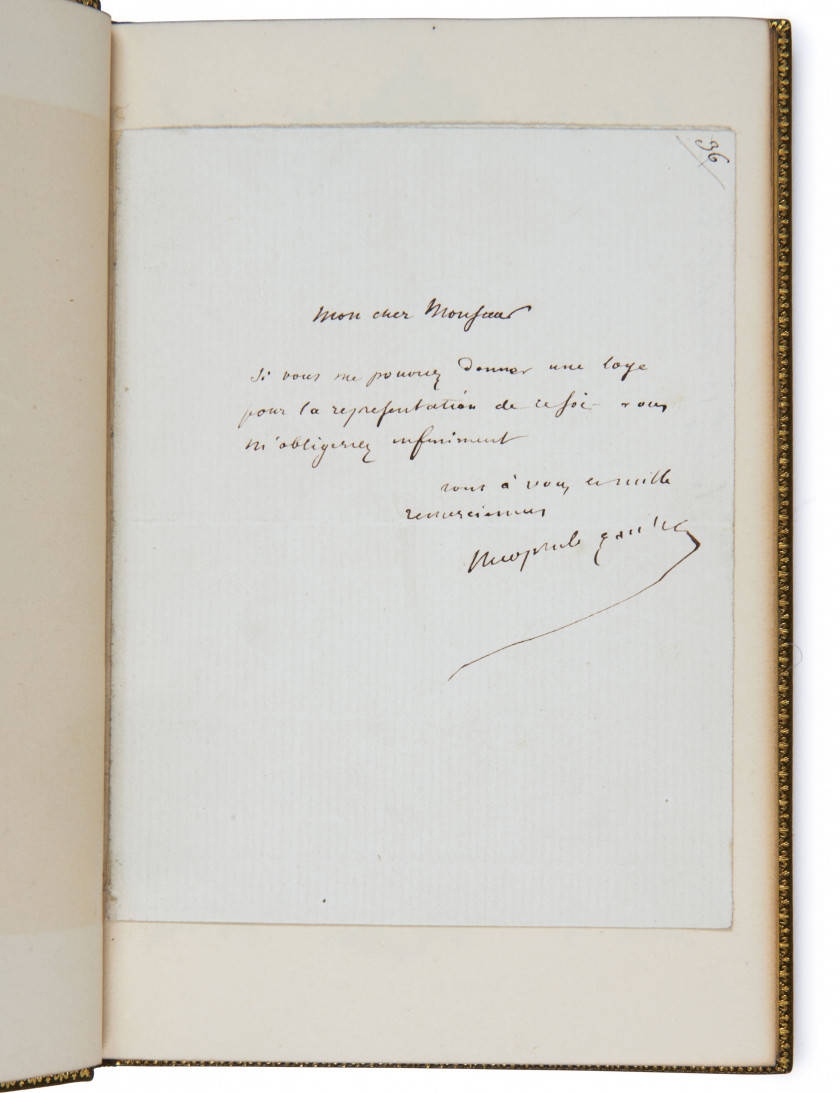 36
Mon cher Monsieur
Si vous me pouviez donner une loge
pour la representation de ce soir vous
m'obligeriez infiniment
tout à vous et mille
remerciemens
Theophile Gautier